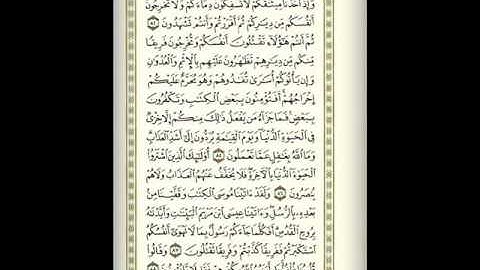 وَإِذْ أَخَذْنَا مِيثَٰقَكُمْ لَا تَسْفِكُونَ دِمَآءَكُمْ وَلَا تُخْرِجُونَ
أَنفُسَكُم مِّن دِيَٰرِكُمْ ثُمَّ أَقْرَرْتُمْ وَأَنتُمْ تَشْهَدُونَ ٨٤
ثُمَّ أَنتُمْ هَٰٓؤُلَآءِ تَقْتُلُونَ أَنفُسَكُمْ وَتُخْرِجُونَ فَرِيقًا
مِّنكُم مِّن دِيَٰرِهِمْ تَظَٰهَرُونَ عَلَيْهِم بِٱلْإِثْمِ وَٱلْعُدْوَٰنِ
وَإِن يَأْتُوكُمْ أُسَٰرَىٰ تُفَٰدُوهُمْ وَهُوَ مُحَرَّمٌ عَلَيْكُمْ
إِخْرَاجُهُمْ أَفَتُؤْمِنُونَ بِبَعْضِ ٱلْكِتَٰبِ وَتَكْفُرُونَ
بِبَعْضٍ فَمَا جَزَآءُ مَن يَفْعَلُ ذَٰلِكَ مِنكُمْ إِلَّا خِزْىٌ
فِى ٱلْحَيَوٰةِ ٱلدُّنْيَا وَيَوْمَ ٱلْقِيَٰمَةِ يُرَدُّونَ إِلَىٰٓ أَشَدِّ ٱلْعَذَابِ
وَمَا ٱللَّهُ بِغَٰفِلٍ عَمَّا تَعْمَلُونَ ٨٥ أُو۟لَٰٓئِكَ ٱلَّذِينَ ٱشْتَرَوُا۟
ٱلْحَيَوٰةَ ٱلدُّنْيَا بِٱلْءَاخِرَةِ فَلَا يُخَفَّفُ عَنْهُمُ ٱلْعَذَابُ وَلَا هُمْ
يُنصَرُونَ ٨٦ وَلَقَدْ ءَاتَيْنَا مُوسَى ٱلْكِتَٰبَ وَقَفَّيْنَا مِنۢ
بَعْدِهِۦ بِٱلرُّسُلِ وَءَاتَيْنَا عِيسَى ٱبْنَ مَرْيَمَ ٱلْبَيِّنَٰتِ وَأَيَّدْنَٰهُ
بِرُوحِ ٱلْقُدُسِ أَفَكُلَّمَا جَآءَكُمْ رَسُولٌۢ بِمَا لَا تَهْوَىٰٓ أَنفُسُكُمُ
ٱسْتَكْبَرْتُمْ فَفَرِيقًا كَذَّبْتُمْ وَفَرِيقًا تَقْتُلُونَ ٨٧ وَقَالُوا۟